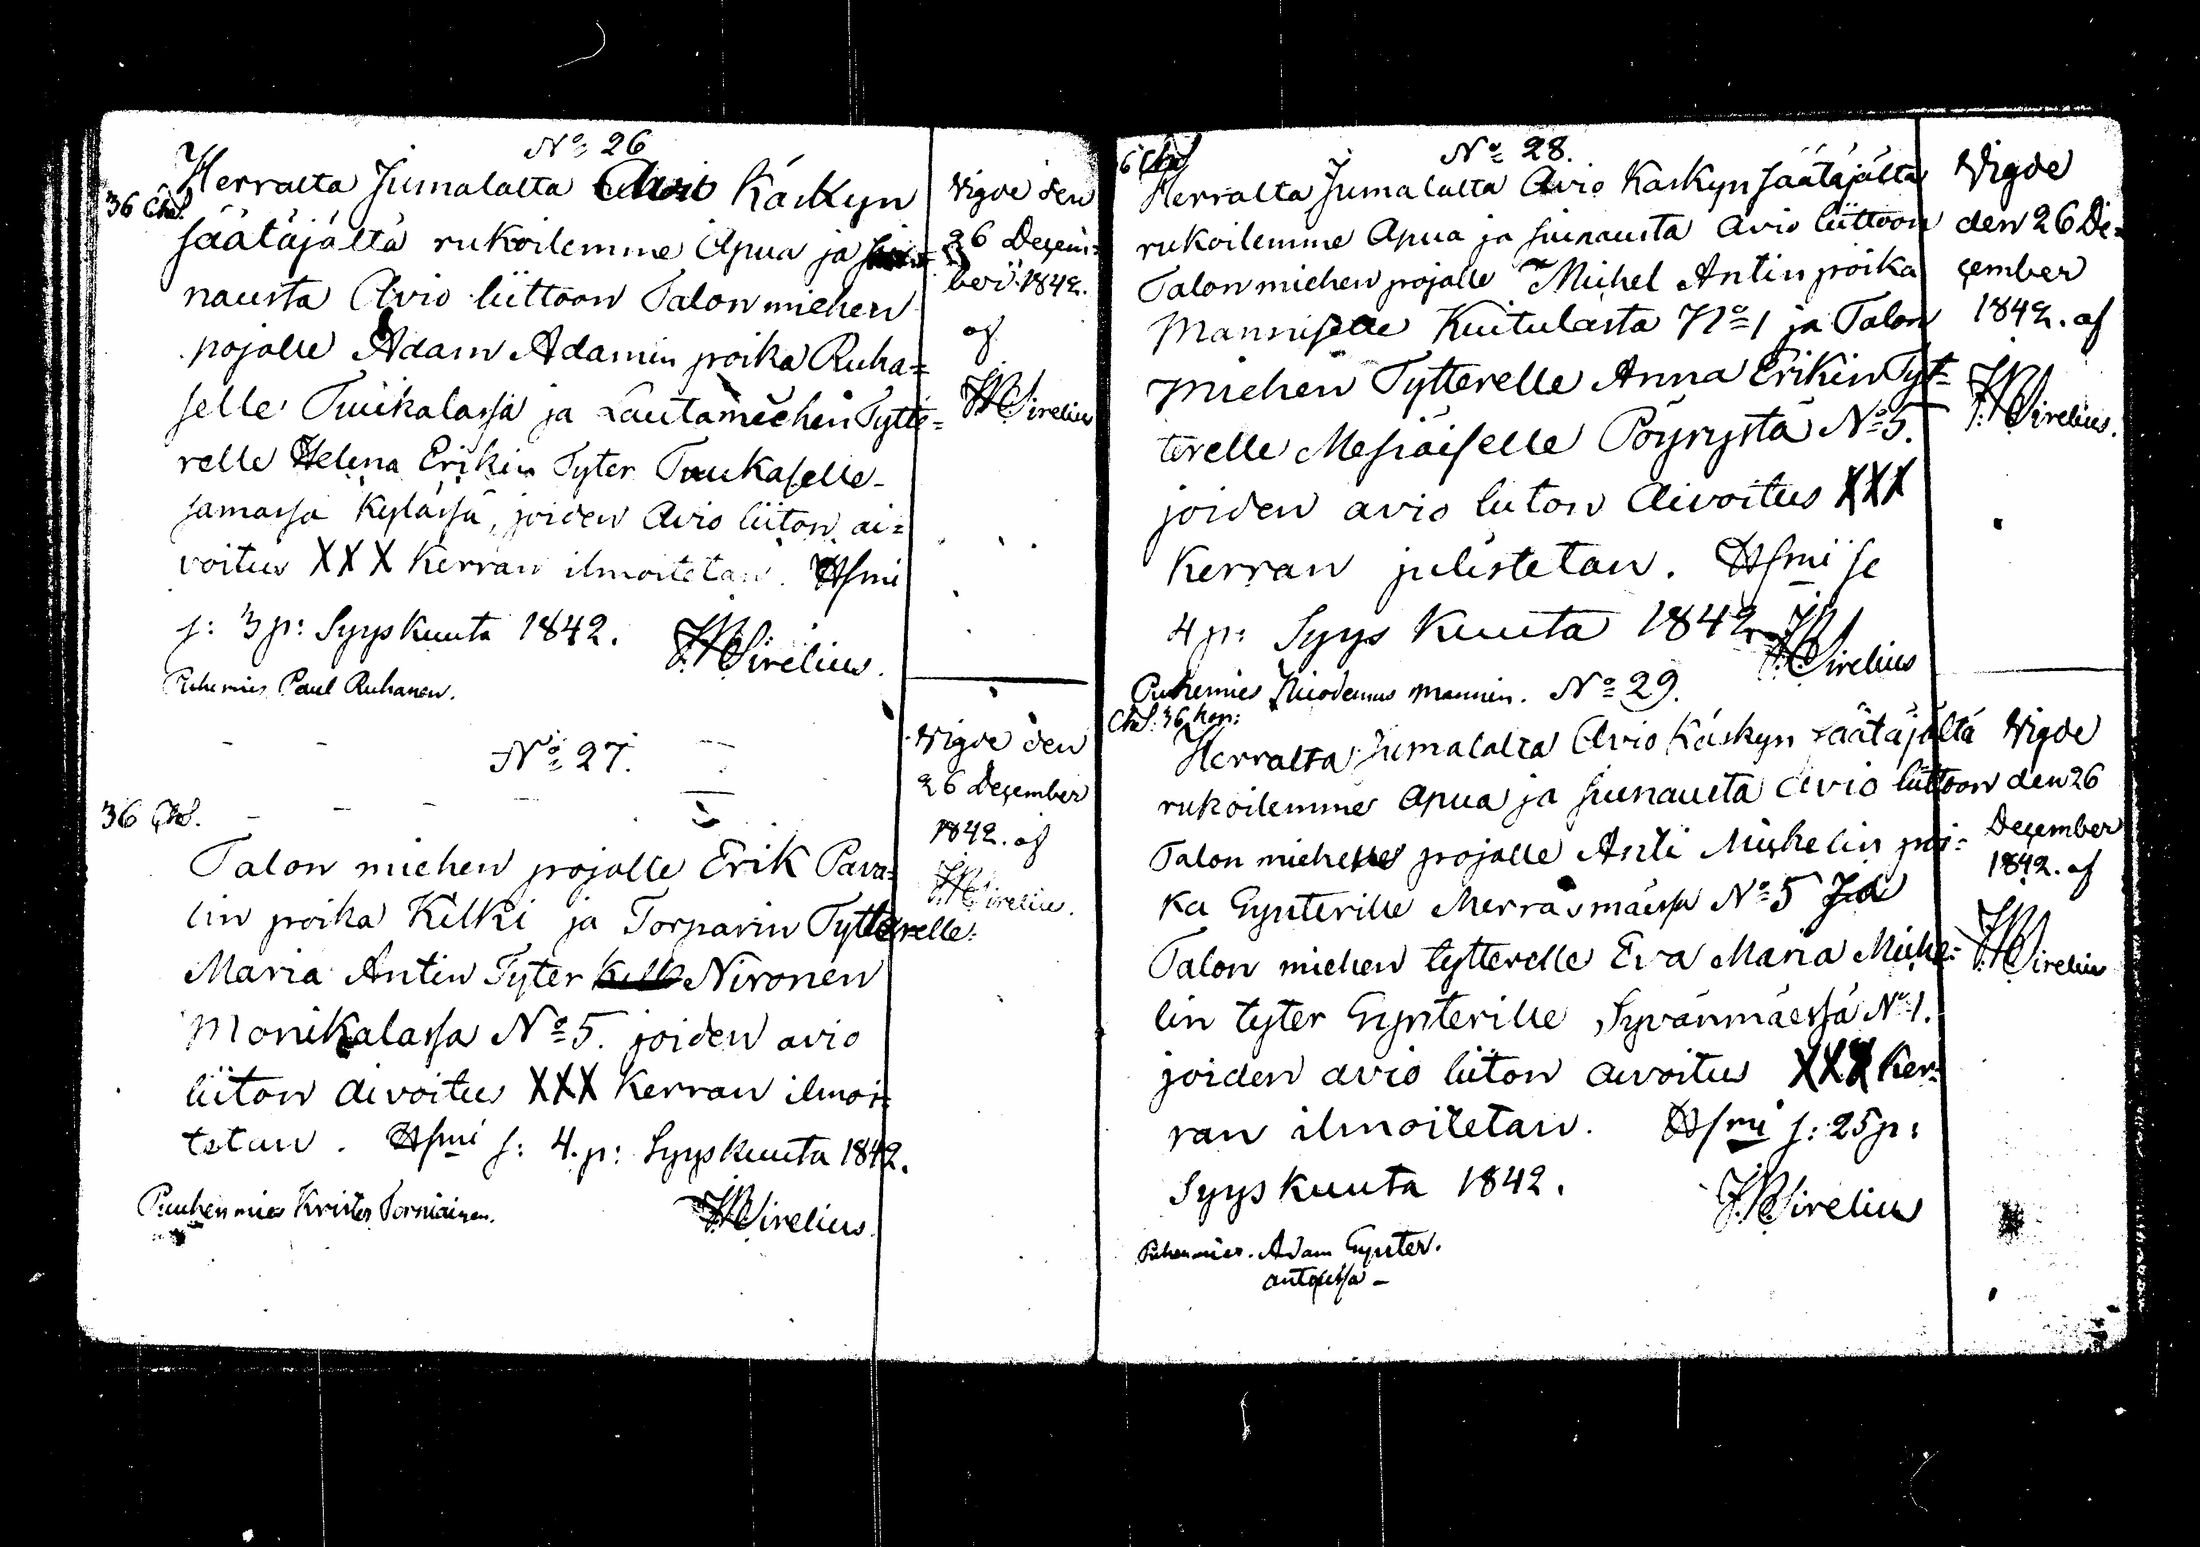 No 26
36 Chs.
Herralta Jumalalta Avio Käskyn
säätäjältä rukoilemme Apua ja
nausta Avio liittoon Talon miehen
pojalle Adam Adamin poika Ruha=
selle Tuukalassa ja Lautamiehen Tytte=
relle Helena Erikin Tyter Tuukaselle
samassa Kylässä, joiden Avio liiton ai=
voitus XXX Kerran ilmoitetan. Hsmi
s: 3 p: Syyskuuta 1842. Sirelius.
Puhemies Paul Ruhanen.
Vigde den
26 Decem=
ber 1842.
af
Sirelius
No 27.
36 Chs.
Talon miehen pojalle Erik Pava=
lin poika Kilki ja Torparin Tytterelle
Maria Antin Tyter Nironen
Monikalassa No 5. joiden avio
liiton aivoitus XXX Kerran ilmoi=
tetan. Hsmi s: 4. p: Syyskuuta 1842.
Puuhenmies Krister Torniainen. Sirelius.
Vigde den
26 December
1842. af
Sirelius.
No 28.
6 Chs
Herralta Jumalalta Avio Käskyn säätäjältä
rukoilemme Apua ja siunausta Avio liittoon
Talon miehen pojalle Michel Antin poika
Manniselle Kuitulasta No 1 ja Talon
miehen Tytterelle Anna Erikin Tyt=
terelle Mesiäiselle Pöyrystä No 5.
joiden avio liiton Aivoitus XXX
Kerran julistetan. Hsmi se
4 p: Syys Kuuta 1842. Sirelius
Puhemies Nicodemus Mannin.
Vigde
den 26 De=
cember
1842. af
Sirelius.
No 29.
Chs. 36 kop:
Herralta Jumalalta Avio Käskyn säätäjältä
rukoilemme apua ja siunausta Avio liittoon
Talon miehen pojalle Anti Mickelin poi=
ka Gynterille Merrasmäessä No 5 Ja
Talon miehen tytterelle Eva Maria Miche=
lin tyter Gynterille, Syvänmäessä No 1.
joiden avio liiton aivoitus XXX Ker=
ran ilmoitetan. Hsmi s: 25 p:
Syyskuuta 1842. Sirelius
Puhenmies. Adam Gynter.
Vigde
den 26
December
1842. af
Sirelius